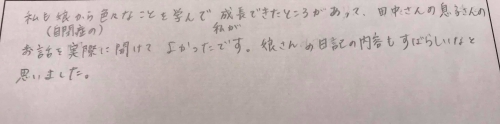 私も娘から色々なことを学んで 成長できたところがあって、田中さんの息子さんの
(自閉症の) 私が
お話を実際に聞けて よかったです。娘さんの日記の内容もすばらしいなと
思いました。